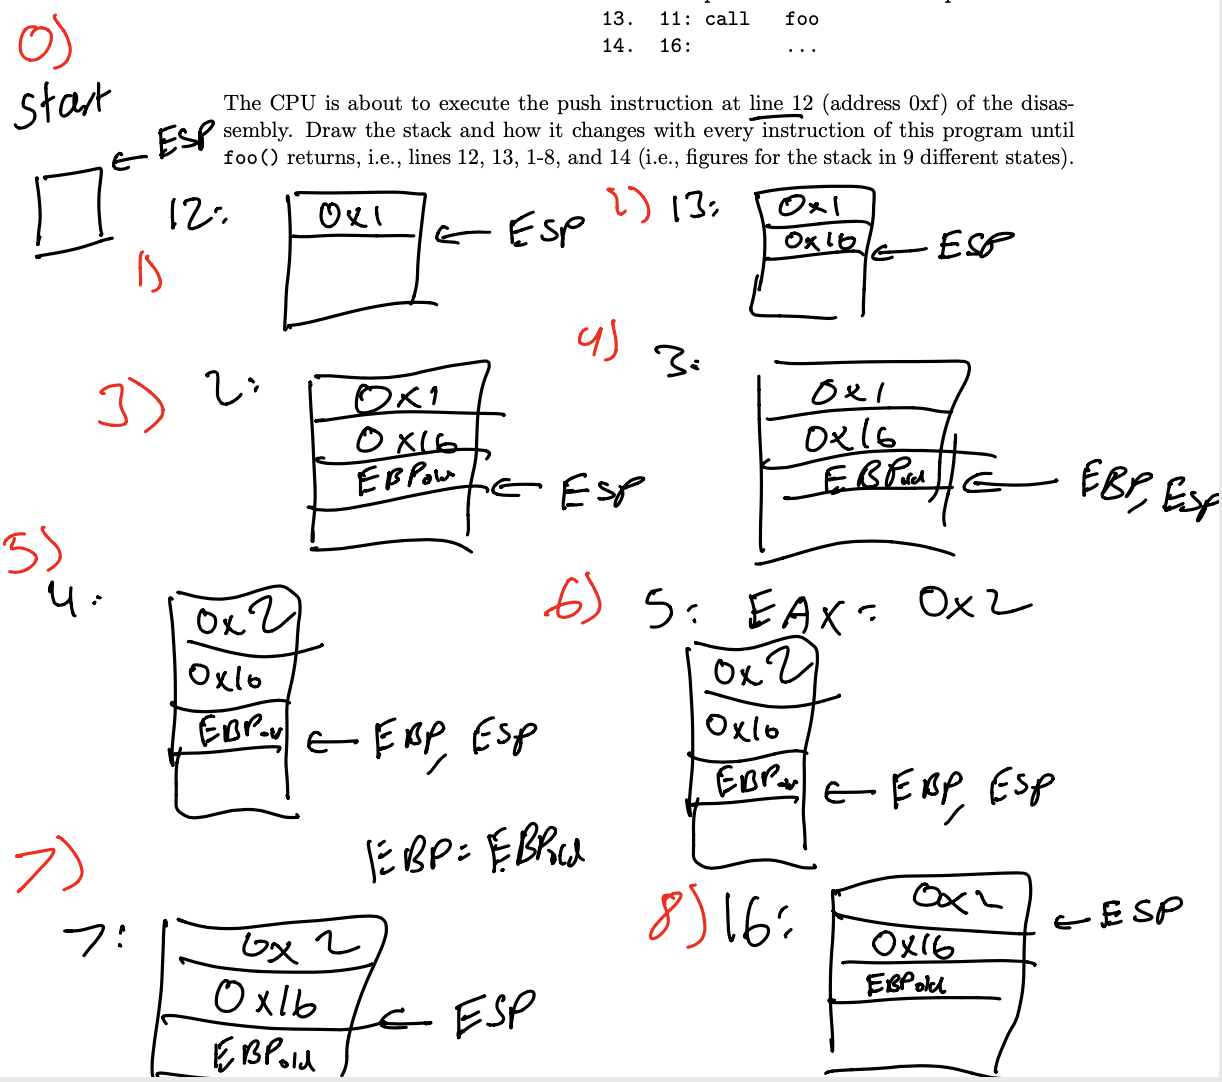 13. 11: call foo
14. 16: ...
0)
Start
The CPU is about to execute the push instruction at line 12 (address 0xf) of the disas-
sembly. Draw the stack and how it changes with every instruction of this program until
foo() returns, i.e., lines 12, 13, 1-8, and 14 (i.e., figures for the stack in 9 different states).
← ESP
1)
12:
0x1
← ESP
2) 13:
0x1
0x16
← ESP
3) 2:
0x1
0x16
EBPold
← ESP
4) 3:
0x1
0x16
EBPold
← EBP, ESP
5)
4:
0x2
0x16
EBPold
← EBP, ESP
6) 5: EAX = 0x2
0x2
0x16
EBPold
← EBP, ESP
7)
EBP = EBPold
7:
0x2
0x16
← ESP
EBPold
8) 16:
0x2
← ESP
0x16
EBPold